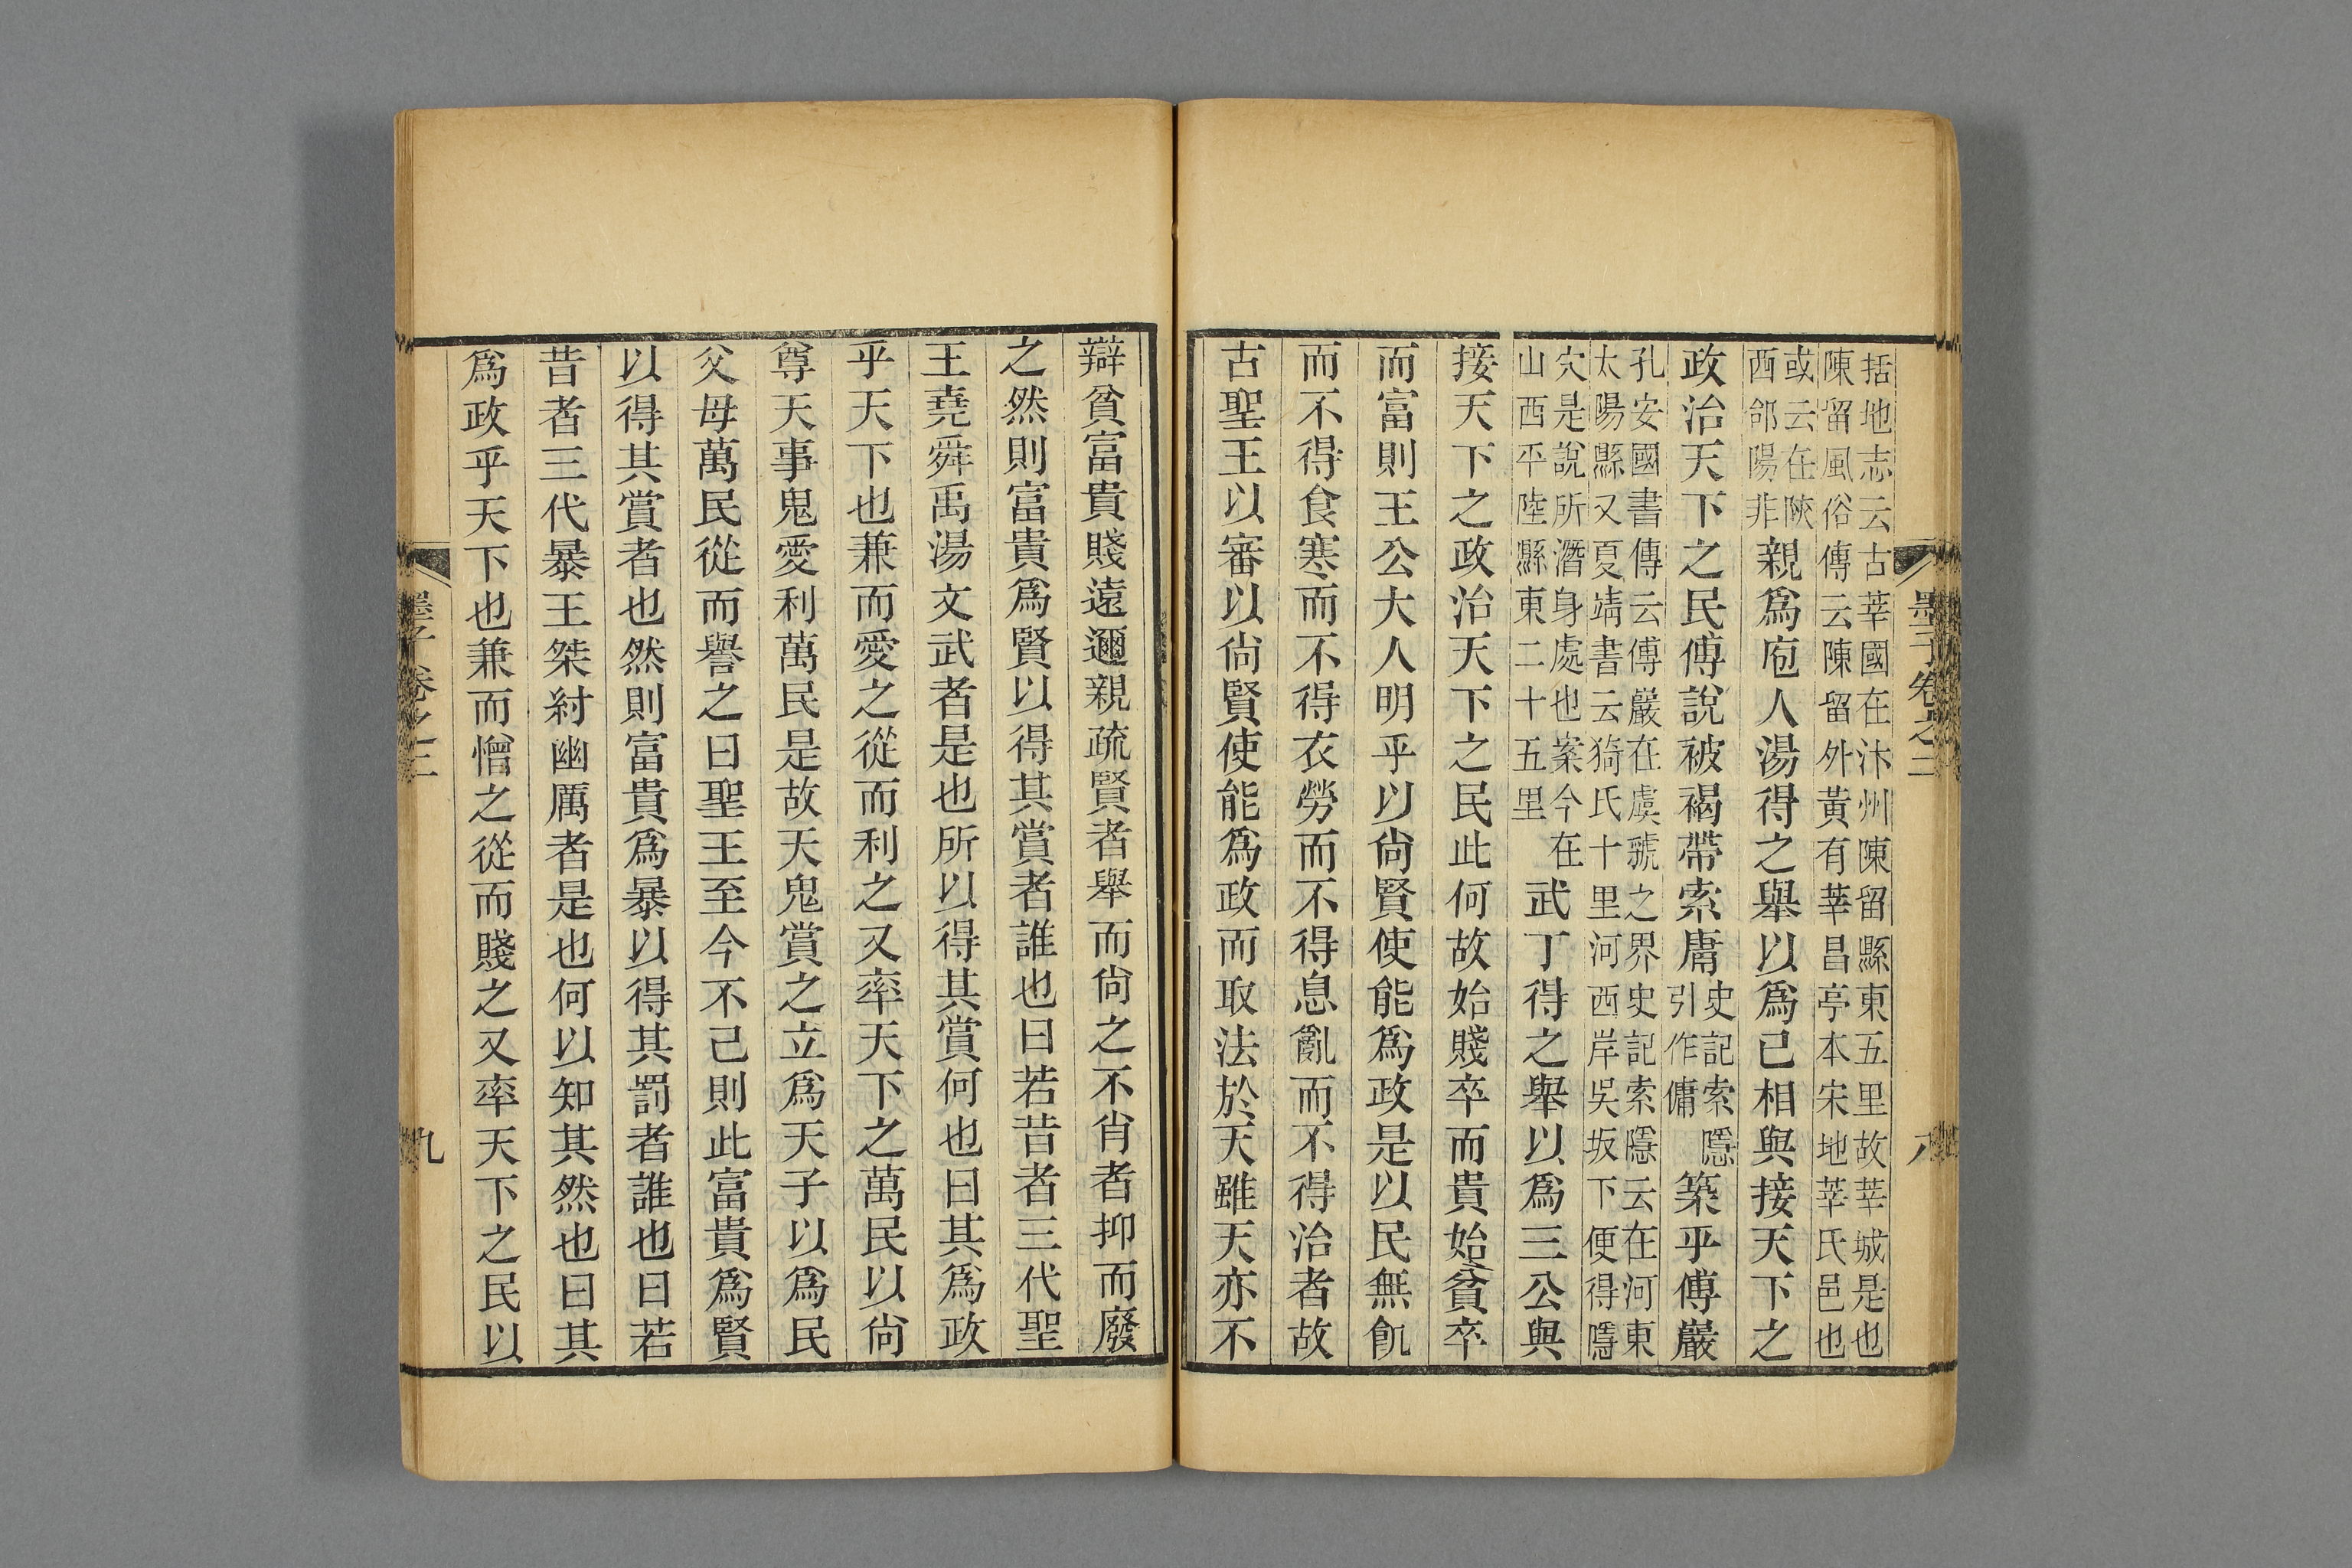 墨子卷之二
八
括地志云古莘國在汴州陳留縣東五里故莘城是也
陳留風俗傳云陳留外黃有莘昌亭本宋地莘氏邑也
或云在陝
西郃陽非
親爲庖人湯得之舉以爲己相與接天下之
政治天下之民傅說被褐帶索庸
史記索隱
引作傭
築乎傅巖
孔安國書傳云傅巖在虞虢之界史記索隱云在河東
太陽縣又夏靖書云猗氏十里河西岸吳坂下便得隱
穴是說所潛身處也案今在
山西平陸縣東二十五里
武丁得之舉以爲三公與
接天下之政治天下之民此何故始賤卒而貴始貧卒
而富則王公大人明乎以尙賢使能爲政是以民無飢
而不得食寒而不得衣勞而不得息亂而不得治者故
古聖王以審以尙賢使能爲政而取法於天雖天亦不
辯貧富貴賤遠邇親疏賢者舉而尙之不肖者抑而廢
之然則富貴爲賢以得其賞者誰也曰若昔者三代聖
王堯舜禹湯文武者是也所以得其賞何也曰其爲政
乎天下也兼而愛之從而利之又率天下之萬民以尙
尊天事鬼愛利萬民是故天鬼賞之立爲天子以爲民
父母萬民從而譽之曰聖王至今不已則此富貴爲賢
以得其賞者也然則富貴爲暴以得其罰者誰也曰若
昔者三代暴王桀紂幽厲者是也何以知其然也曰其
爲政乎天下也兼而憎之從而賤之又率天下之民以
墨子卷之二
九